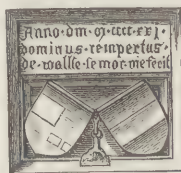 Anno · dm · m · cccc · xxi ·
dominus · reinpertus ·
de · wallse · se · mor · me fecit